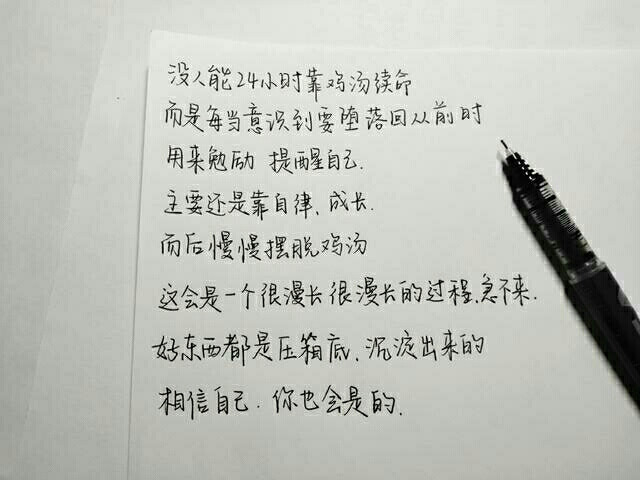 没人能24小时靠鸡汤续命
而是每当意识到要堕落回从前时
用来勉励 提醒自己.
主要还是靠自律、成长.
而后慢慢摆脱鸡汤
这会是一个很漫长很漫长的过程,急不来.
好东西都是压箱底、沉淀出来的
相信自己. 你也会是的.